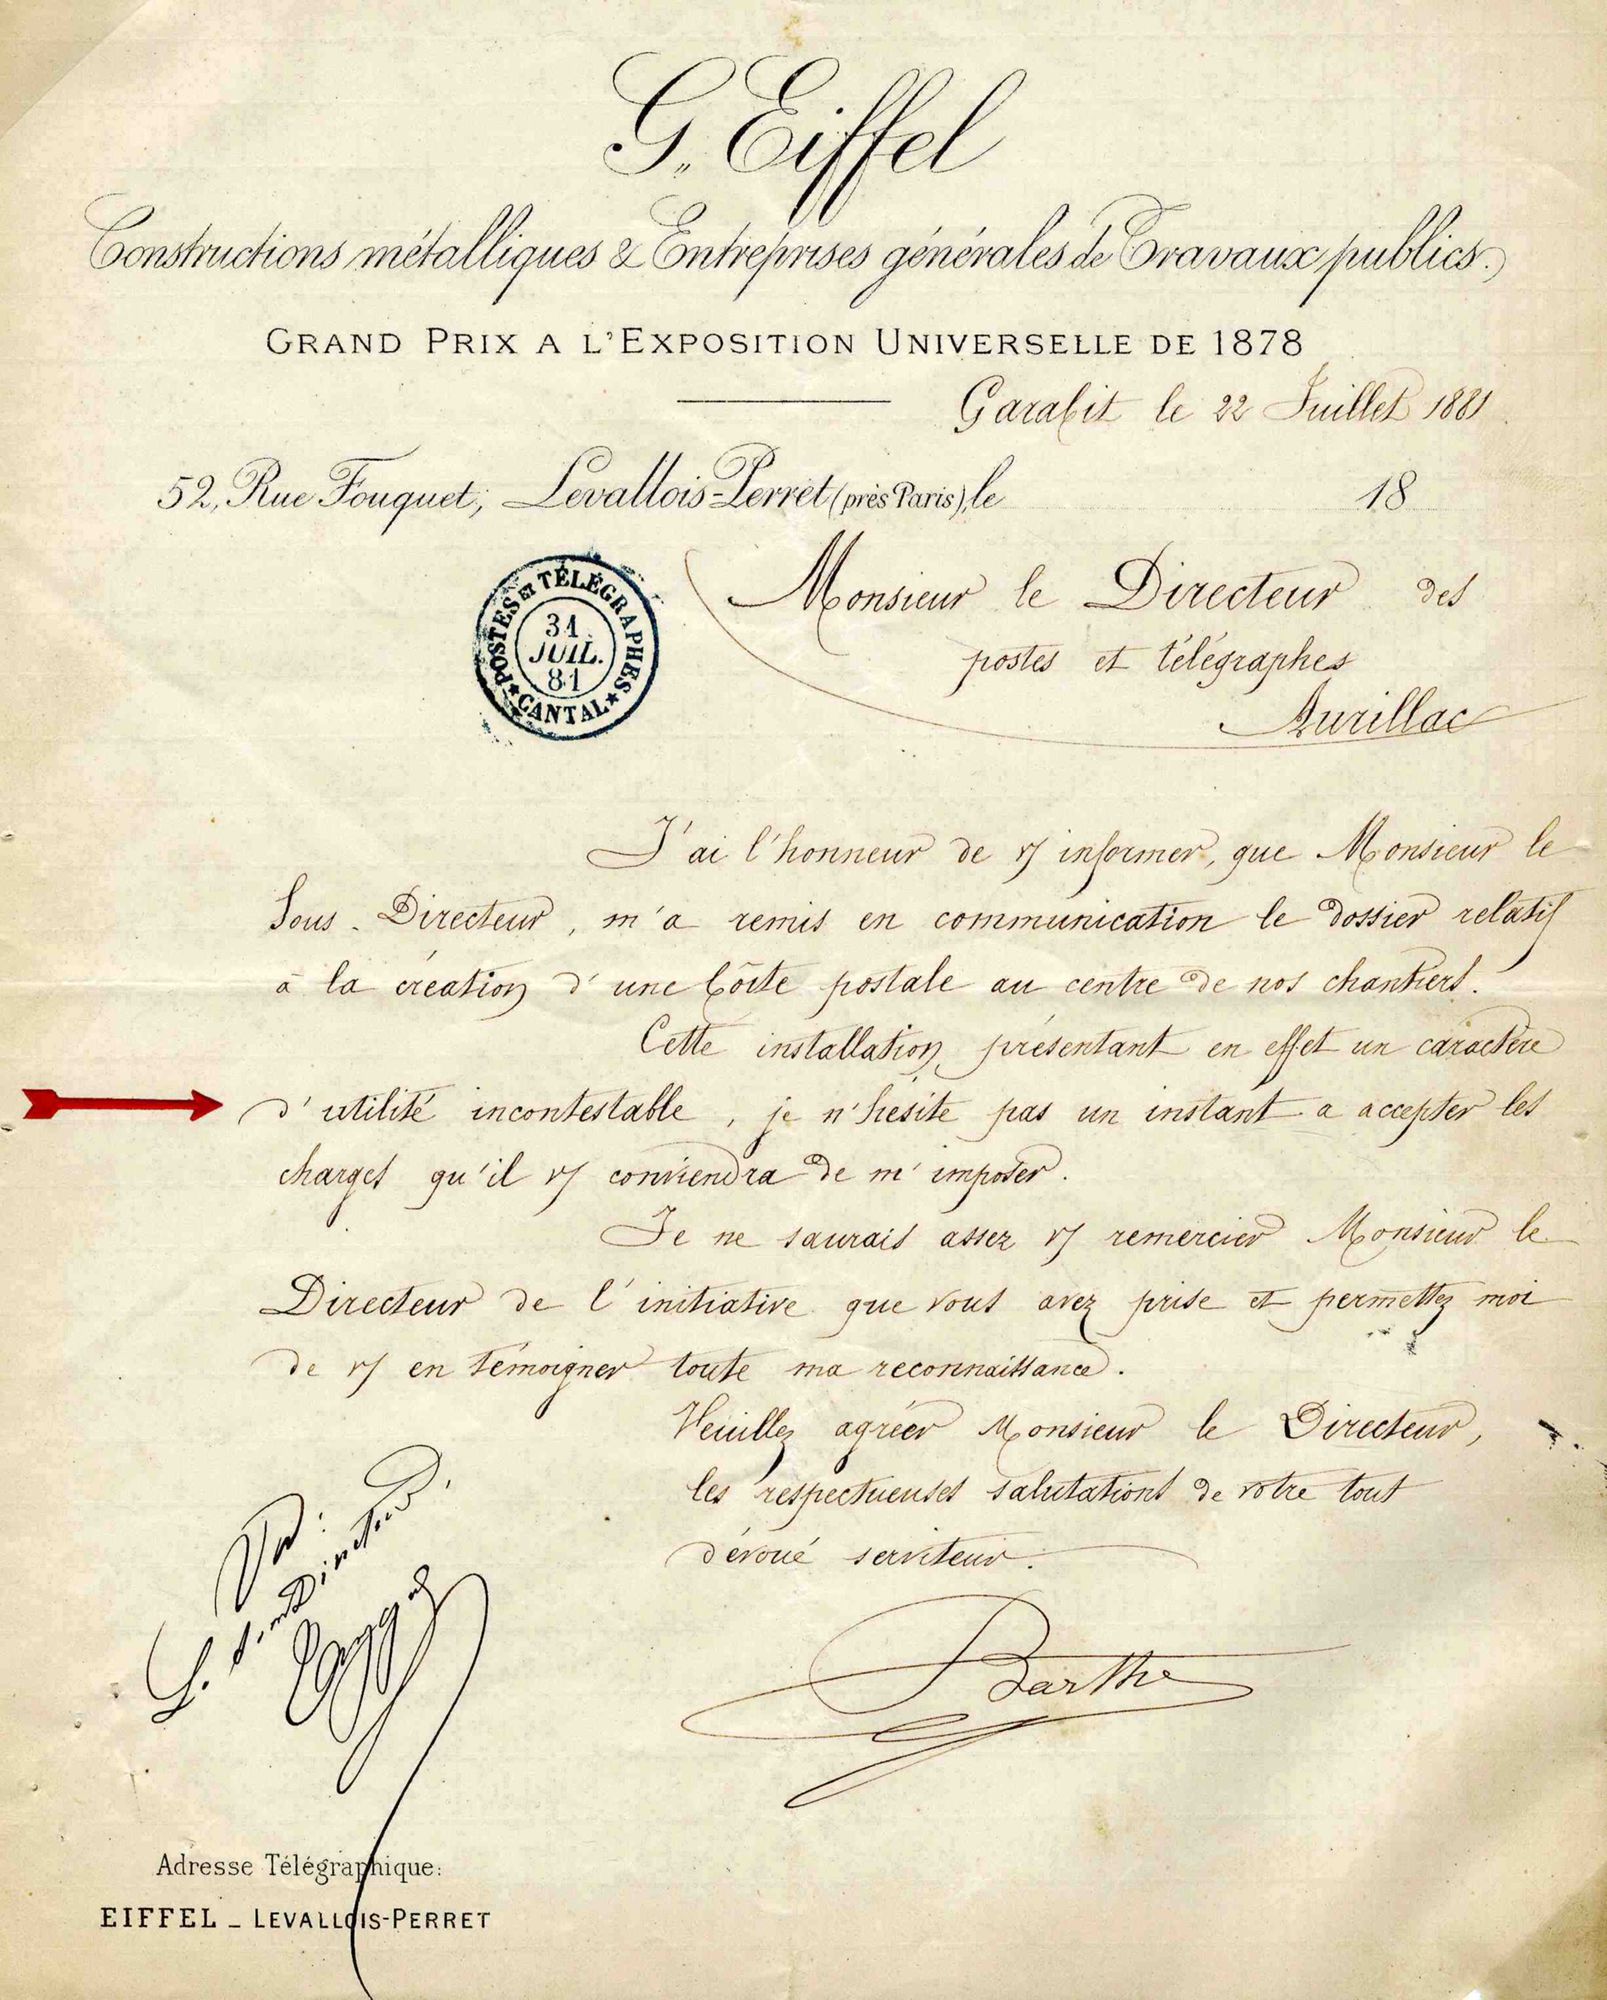 G. Eiffel
Constructions métalliques & Entreprises générales de Travaux publics.
GRAND PRIX A L'EXPOSITION UNIVERSELLE DE 1878
Garabit le 22 Juillet 1881
52, Rue Fouquet, Levallois-Perret (près Paris), le 18
POSTES ET TÉLÉGRAPHES
31
JUIL.
81
CANTAL
Monsieur le Directeur des
postes et télégraphes
Aurillac
J'ai l'honneur de vs informer, que Monsieur le
Sous-Directeur, m'a remis en communication le dossier relatif
à la création d'une boîte postale au centre de nos chantiers.
Cette installation présentant en effet un caractère
d'utilité incontestable, je n'hésite pas un instant a accepter les
charges qu'il vs conviendra de m'imposer.
Je ne saurais assez vs remercier Monsieur le
Directeur de l'initiative que vous avez prise et permettez moi
de vs en témoigner toute ma reconnaissance.
Veuillez agréer Monsieur le Directeur,
les respectueuses salutations de votre tout
dévoué serviteur.
Barthe
Vu:
Directeur
Adresse Télégraphique:
EIFFEL - LEVALLOIS-PERRET